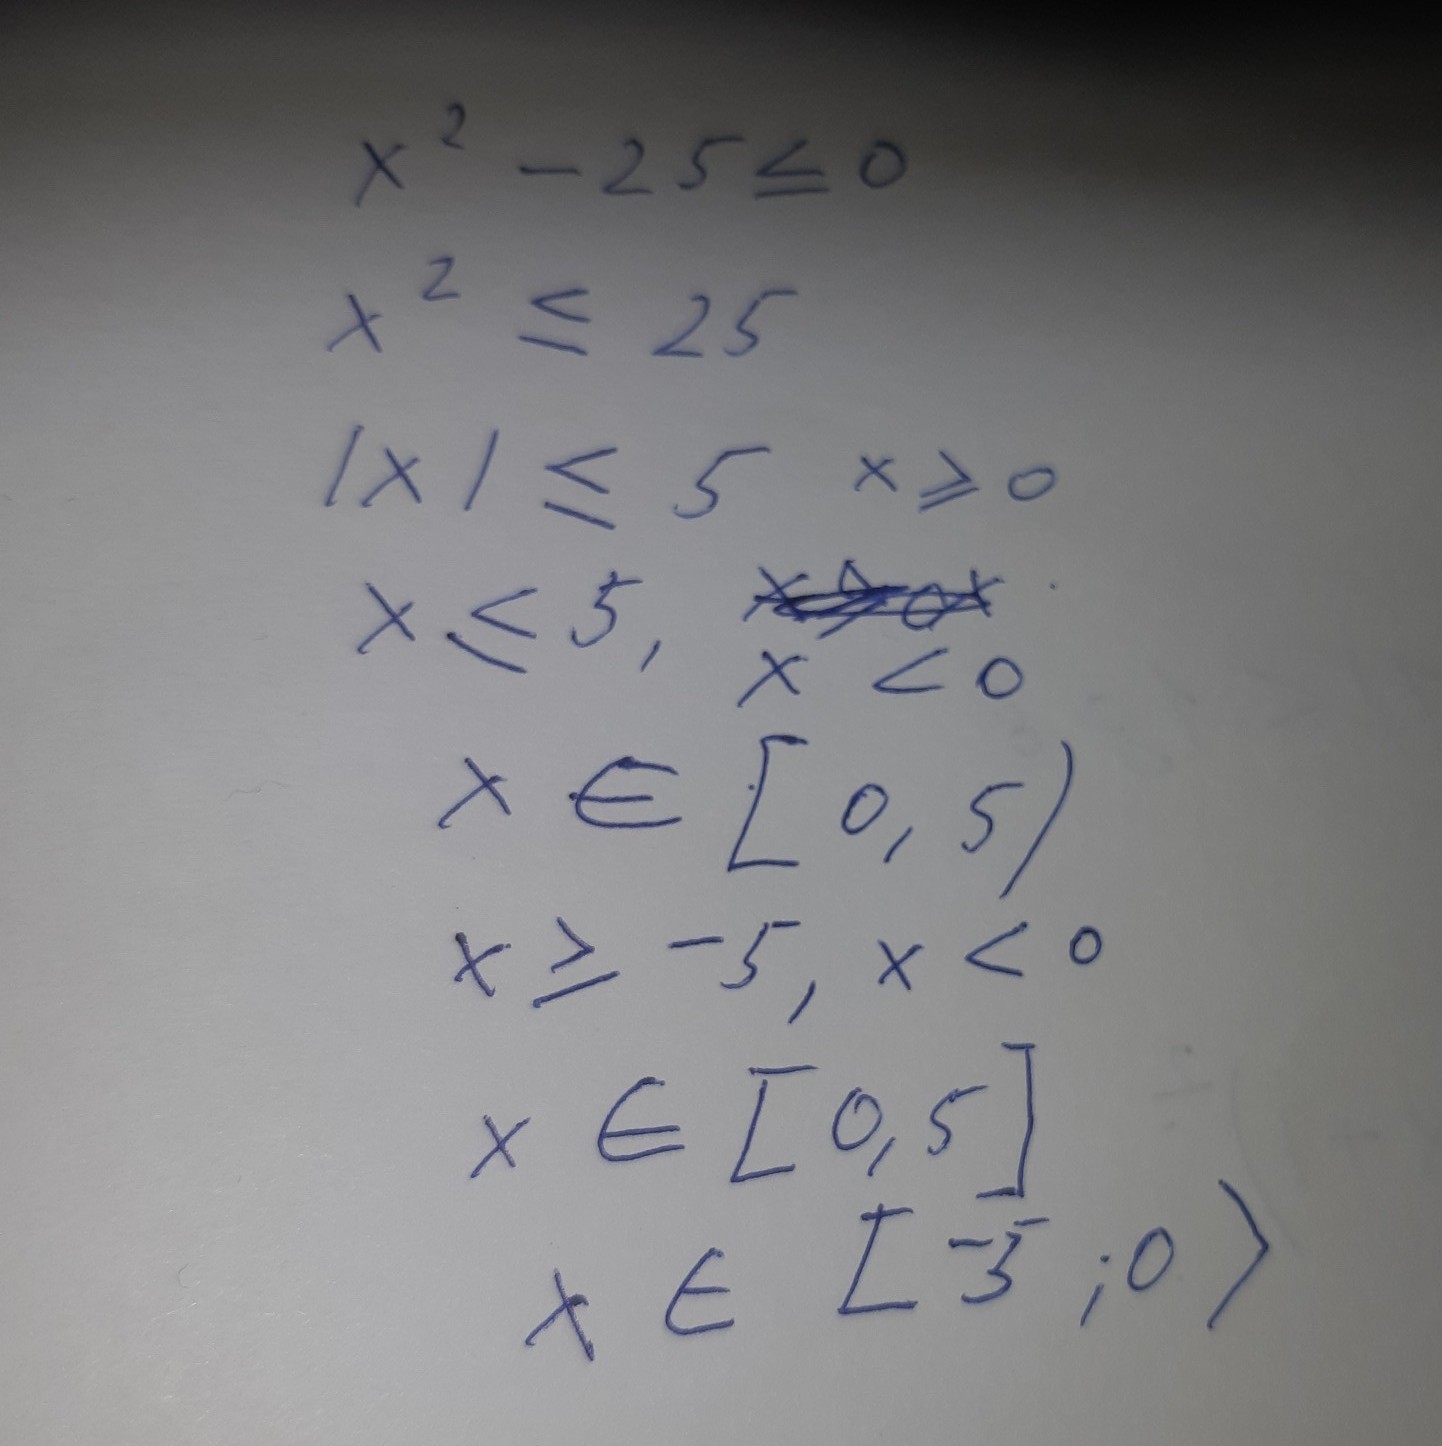 x² - 25 ≤ 0
x² ≤ 25
|x| ≤ 5 x ⩾ 0
x ≤ 5,
x < 0
x ∈ [0, 5)
x ≥ -5, x < 0
x ∈ [0, 5]
x ∈ [-5 ; 0⟩